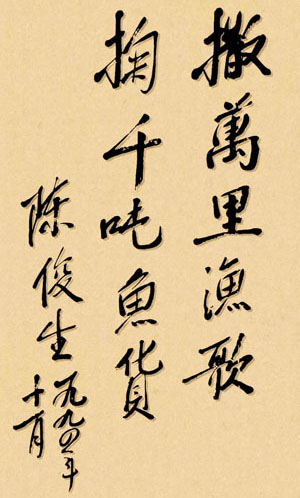 撒萬里漁歌
掬千吨魚貨
陈俊生
一九九四年
十一月